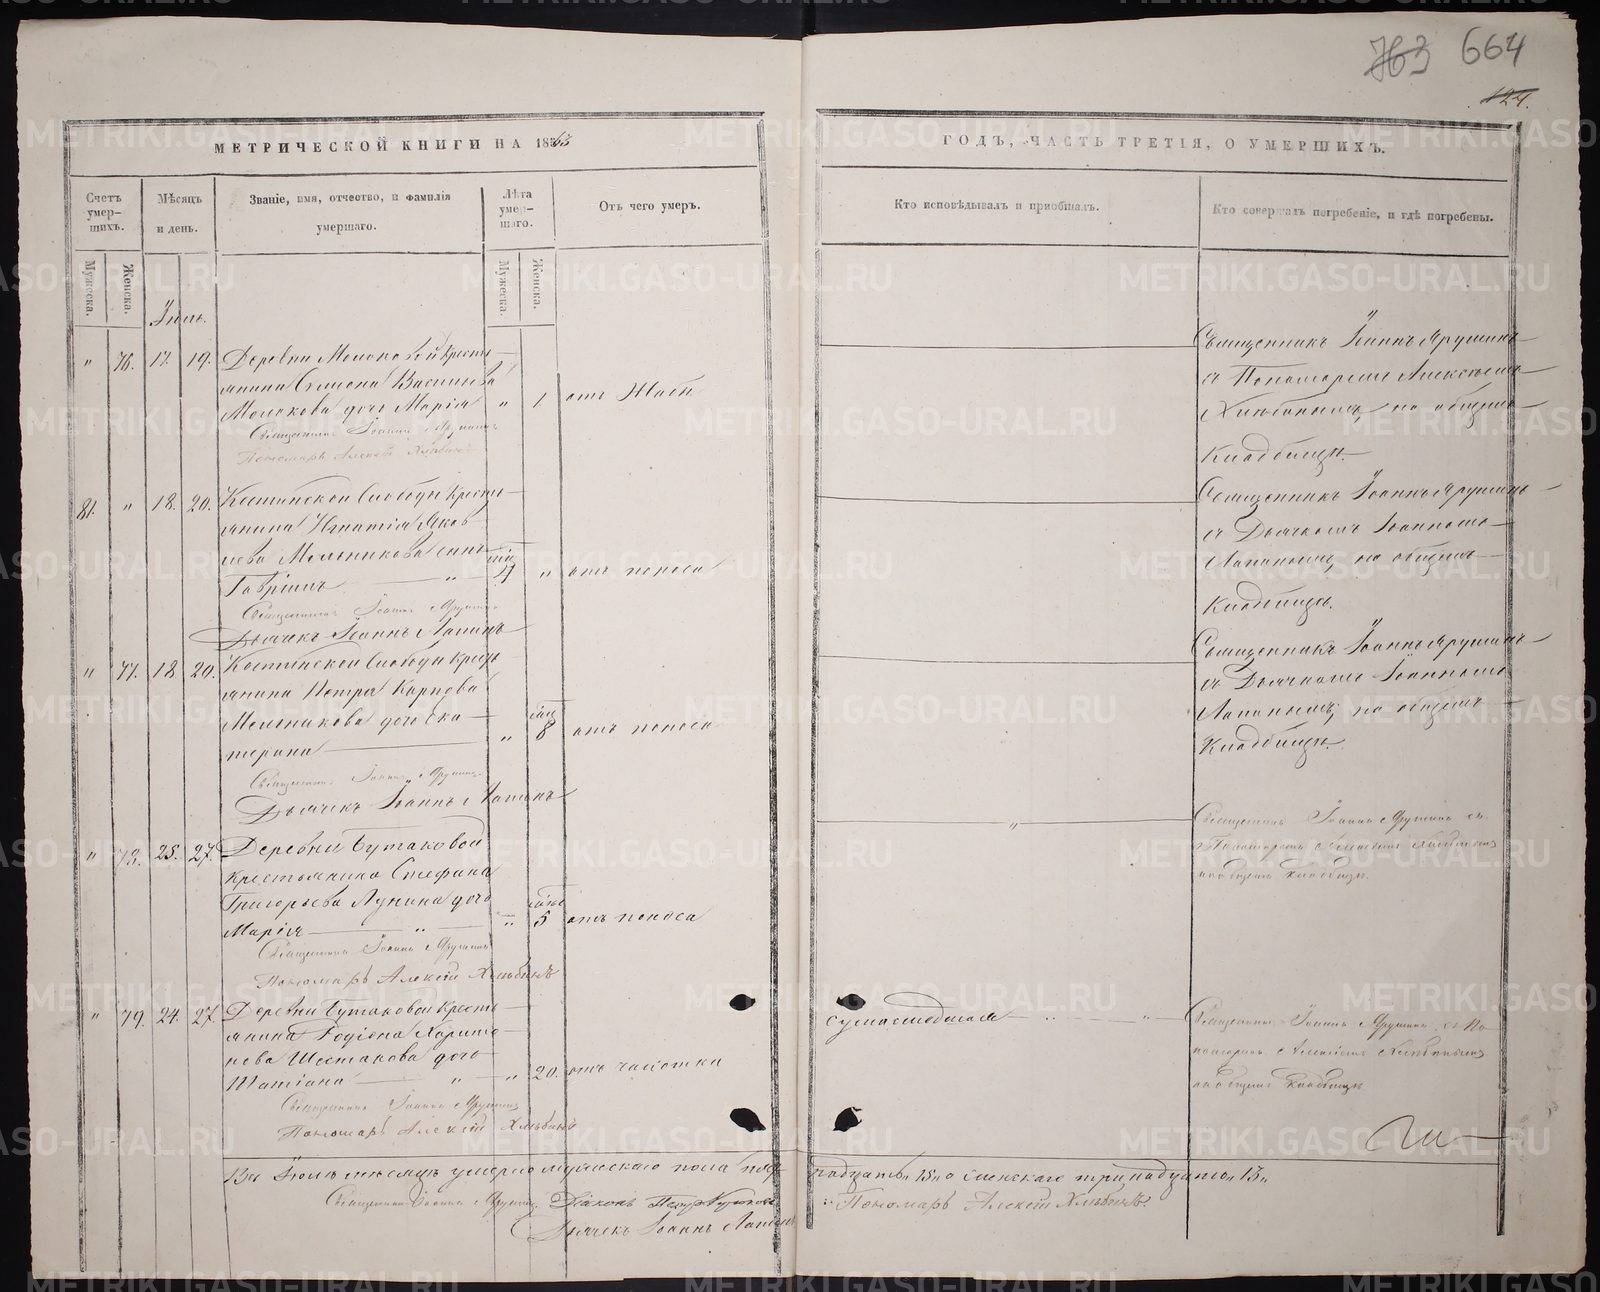 763 664
124.
МЕТРИЧЕСКОЙ КНИГИ НА 1863
ГОДЪ, ЧАСТЬ ТРЕТІЯ, О УМЕРШИХЪ.
Счетъ умер-шихъ.
Мѣсяцъ и день.
Званіе, имя, отчество, и фамилія умершаго.
Лѣта умер-шаго.
Отъ чего умеръ.
Кто исповѣдывалъ и пріобщалъ.
Кто совершалъ погребеніе, и гдѣ погребены.
Мужеска.
Женска.
Мужеска.
Женска.
Іюль.
" 76. 17. 19. Деревни Молоковой кресть-
янина Симеона Васильева
Молокова дочь Марія " 1 отъ
Священникъ Іоаннъ Ярушинъ
Пономарь Алексій Хлѣбинъ
Священникъ Іоаннъ Ярушинъ
съ Пономаремъ Алексѣемъ
Хлѣбинымъ на общемъ
Кладбищѣ.
81. " 18. 20. Костинской Слободы кресть-
янина Игнатія Яков-
лева Мельникова сынъ
Гавріилъ " 4 " отъ поноса
Священникъ Іоаннъ Ярушинъ
Дьячекъ Іоаннъ Лапинъ
Священникъ Іоаннъ Ярушинъ
съ Дьячкомъ Іоанномъ
Лапинымъ, на общемъ
Кладбищѣ.
" 77. 18. 20. Костинской Слободы кресть
янина Петра Карпова
Мельникова дочь Ека-
терина " 8 отъ поноса
Священникъ Іоаннъ Ярушинъ
Дьячекъ Іоаннъ Лапинъ
Священникъ Іоаннъ Ярушинъ
съ Дьячкомъ Іоанномъ
Лапинымъ, на общемъ
Кладбищѣ.
" 78. 25. 27. Деревни Бутаковой
крестьянина Стефана
Григорьева Лунина дочь
Марія " " 5 отъ поноса
Священникъ Іоаннъ Ярушинъ
Пономарь Алексій Хлѣбинъ
"
Священникъ Іоаннъ Ярушинъ съ
Пономаремъ Алексіемъ Хлѣбинымъ
на общемъ Кладбищѣ.
" 79. 24. 27. Деревни Бутаковой кресть-
янина Родіона Харито-
нова Шестакова дочь
Татіана " " 20. отъ чахотки
Священникъ Іоаннъ Ярушинъ
Пономарь Алексій Хлѣбинъ
сумасшедшая " "
Священникъ Іоаннъ Ярушинъ съ По-
номаремъ Алексіемъ Хлѣбинымъ
на общемъ Кладбищѣ
Въ Іюлѣ мѣсяцѣ умерло мужескаго пола пят-
надцать 15. а женскаго тринадцать 13.
Священникъ Іоаннъ Ярушинъ Діаконъ Петръ
Дьячекъ Іоаннъ Лапинъ
Пономарь Алексій Хлѣбинъ.
METRIKI.GASO-URAL.RU